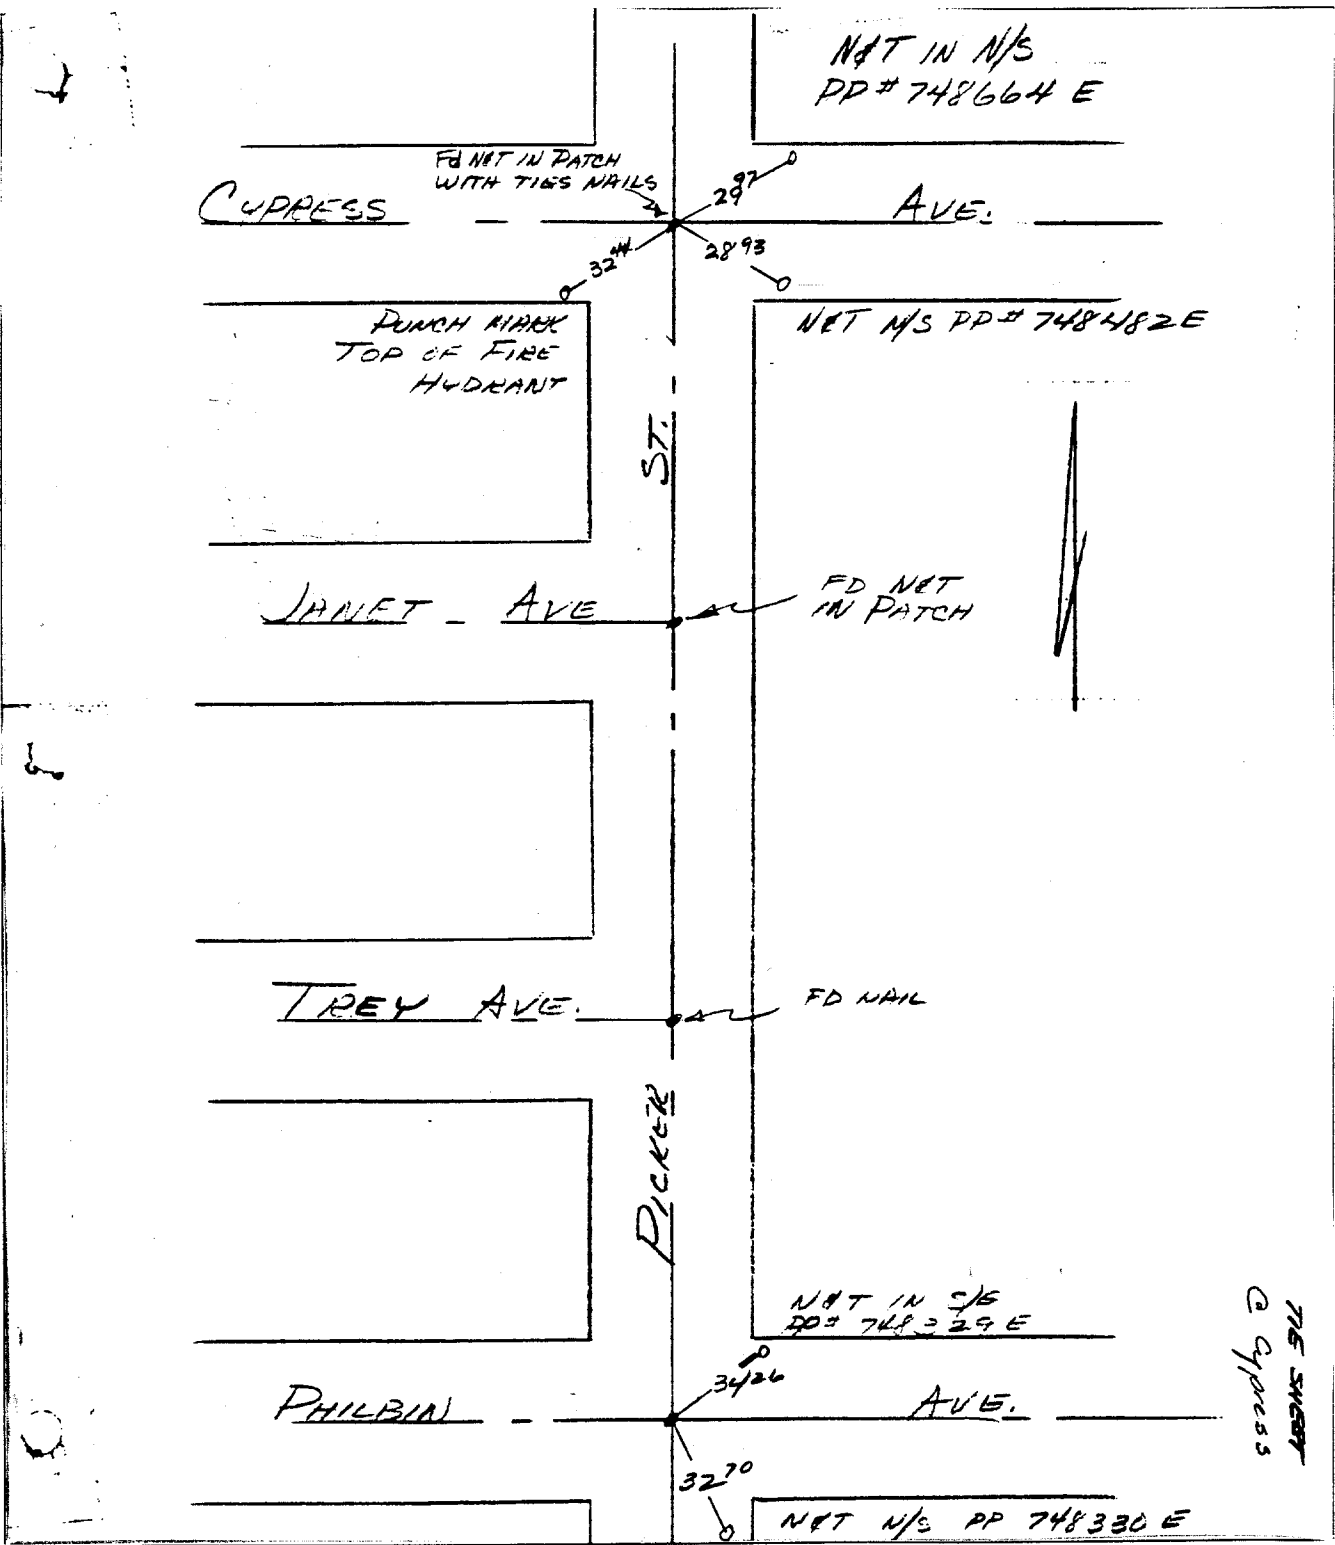 N&T IN N/S
PP# 748664 E
FD N&T IN PATCH
WITH TIES NAILS
CYPRESS AVE.
29 97
32 44
28 93
PUNCH MARK
TOP OF FIRE
HYDRANT
N&T N/S PP# 748482E
ST.
JANET AVE
FD N&T
IN PATCH
TREY AVE.
FD NAIL
PICKER
N&T IN S/E
PP# 748329 E
34 26
PHILBIN AVE.
32 70
N&T N/S PP 748330 E
TIE SHEET
@ Cypress